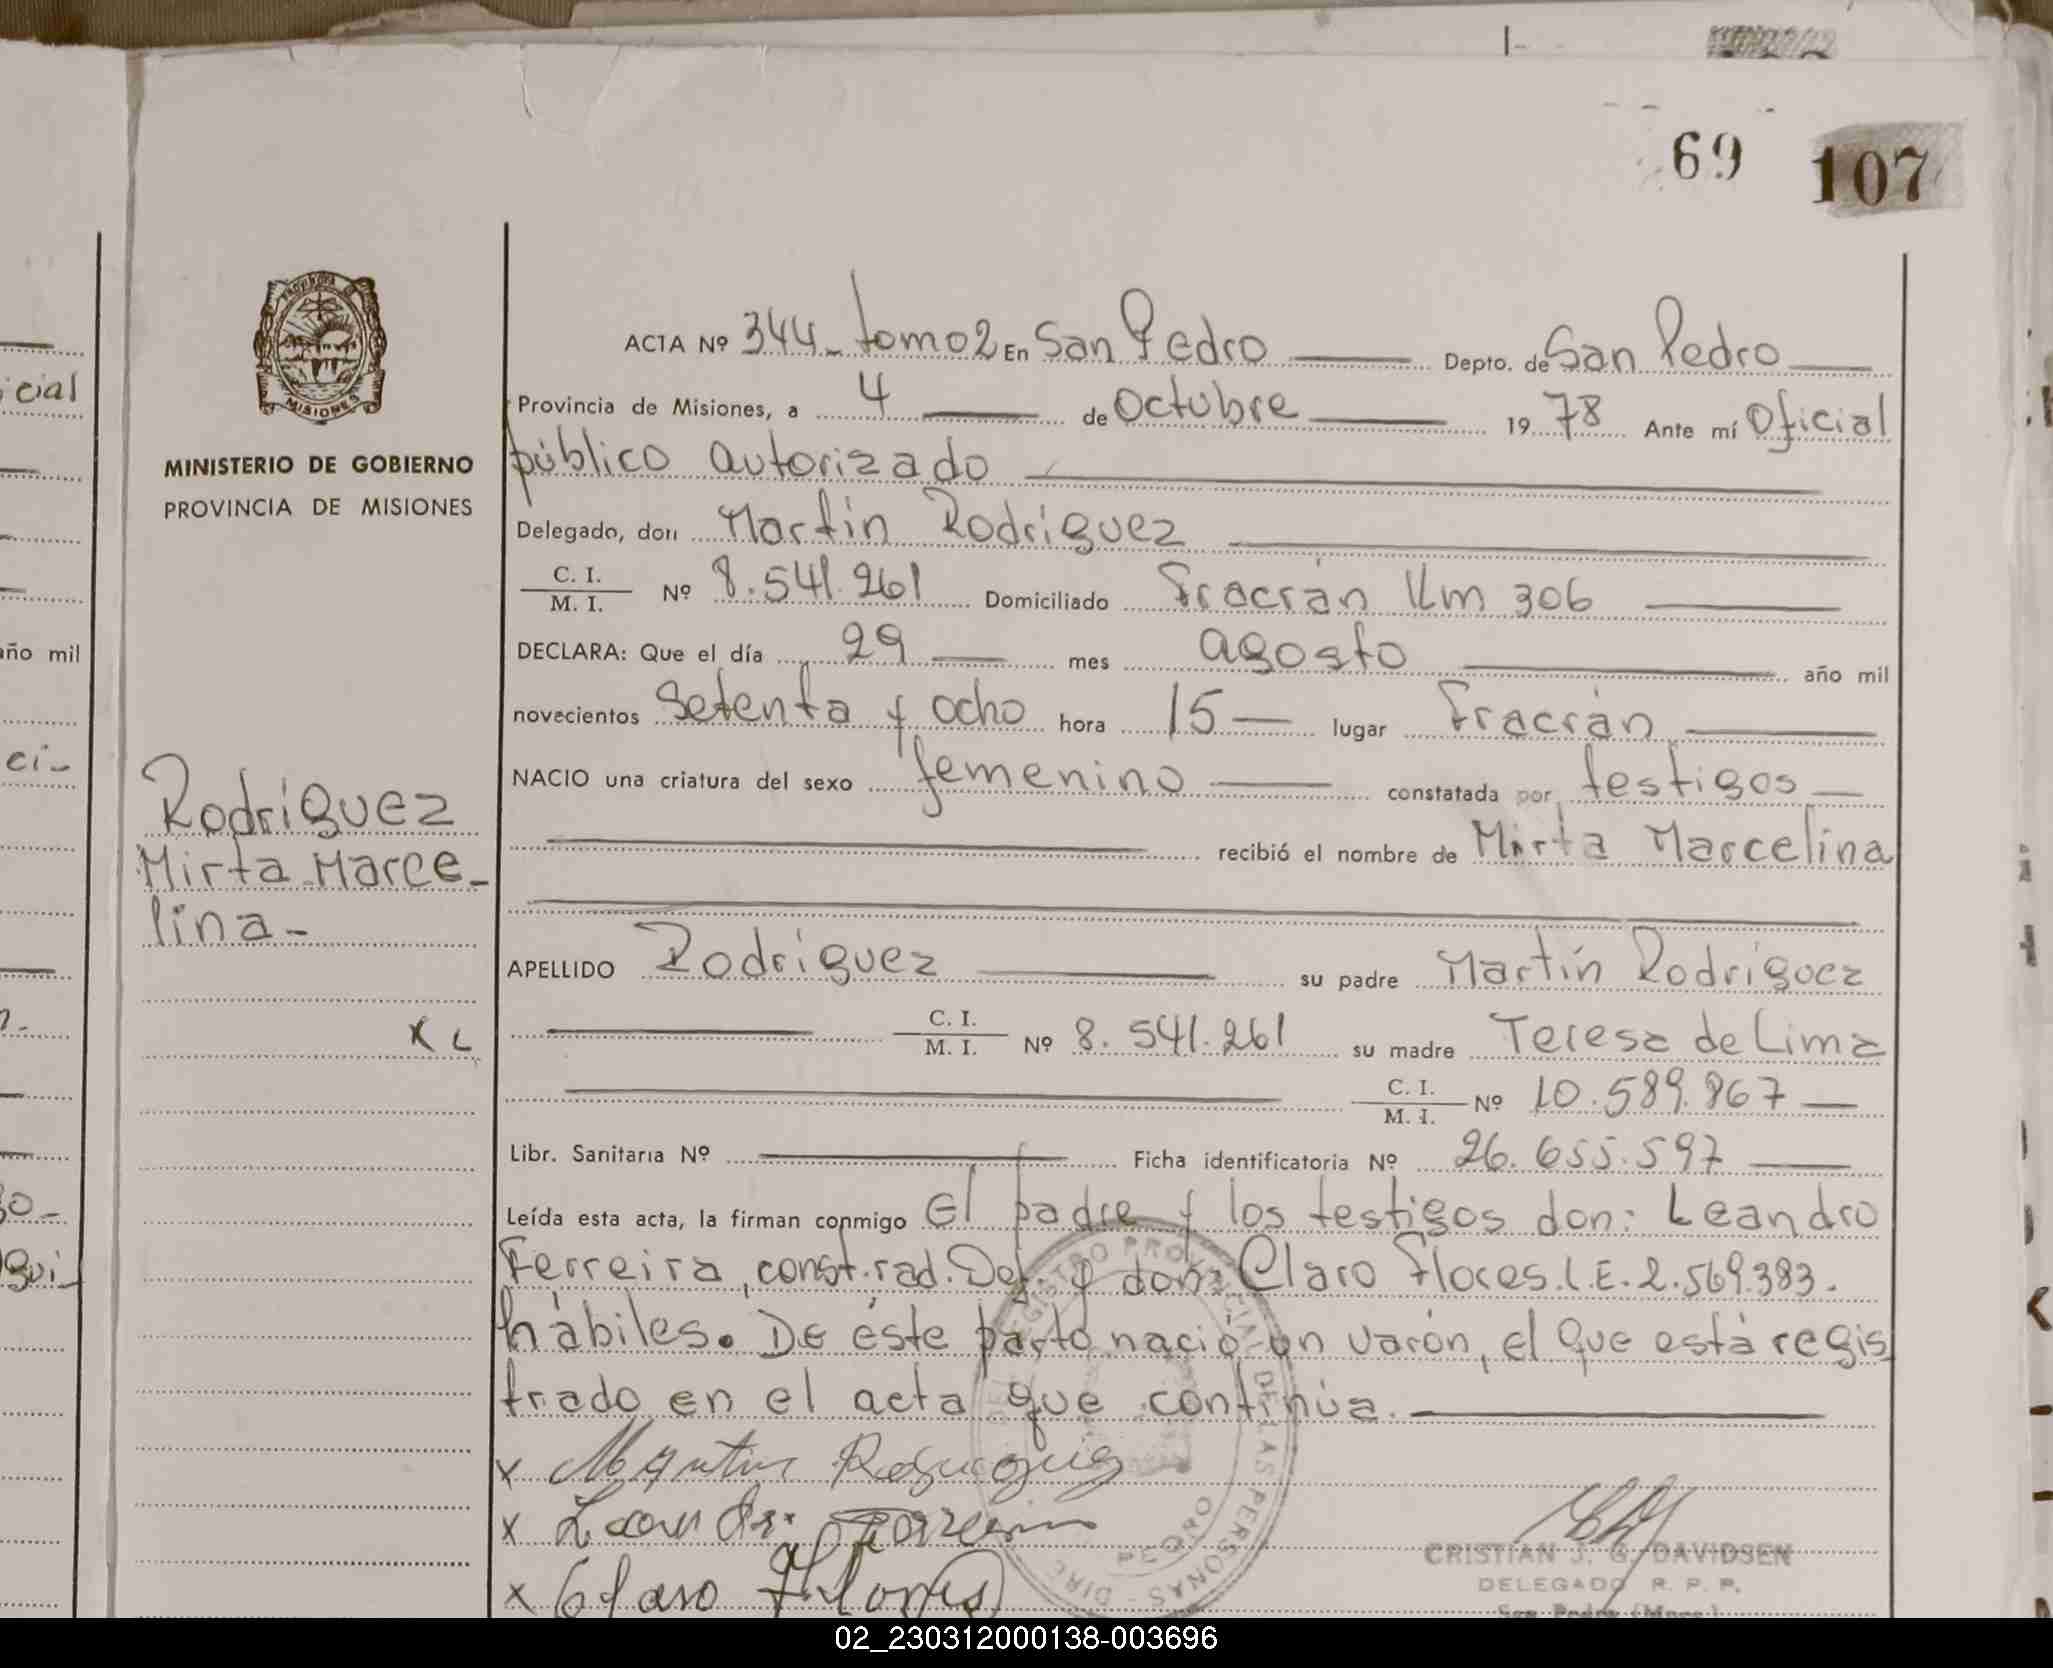 69 107
icial
año mil
ci-
MISIONES
MINISTERIO DE GOBIERNO
PROVINCIA DE MISIONES
Rodriguez
Mirta Marce-
lina-
ACTA Nº 344- tomo 2 En San Pedro Depto. de San Pedro
Provincia de Misiones, a 4 de Octubre 19 78 Ante mí Oficial
público autorizado
Delegado, don Martín Rodriguez
C. I. / M. I. Nº 8.541.261 Domiciliado Fracrán Km 306
DECLARA: Que el día 29 mes agosto año mil
novecientos setenta y ocho hora 15 lugar Fracrán
NACIO una criatura del sexo femenino constatada por testigos
recibió el nombre de Mirta Marcelina
APELLIDO Rodriguez su padre Martín Rodríguez
C. I. / M. I. Nº 8.541.261 su madre Teresa de Lima
C. I. / M. I. Nº 10.589.867
Libr. Sanitaria Nº Ficha identificatoria Nº 26.655.597
Leída esta acta, la firman conmigo El padre y los testigos don: Leandro
Ferreira, const. rad. Def. y don: Claro Flores. L.E. 2.569.383.
hábiles. De éste parto nació un varón, el que está regis
trado en el acta que continúa.
x Martin
x
x Claro Flores
REGISTRO PROVINCIAL DE LAS PERSONAS - DIRE
PEDRO
CRISTIAN J. G. DAVIDSEN
DELEGADO R. P. P.
San Pedro (Mnes.)
02_230312000138-003696